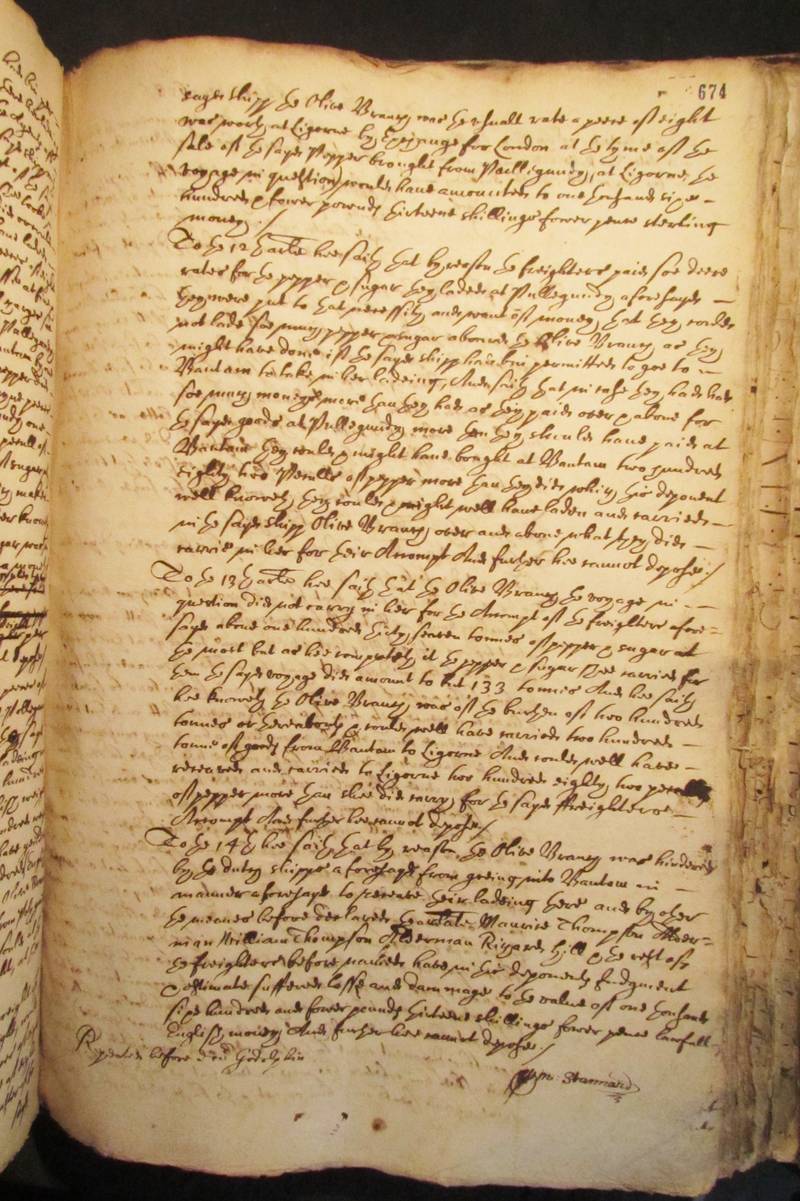 674
sayd shipp the Olive Branch was the usuall rate a peece of eight
was worth at Ligorne by Exchange for London at the tyme of the
sale of the sayd Pepper brought from Pullegundy, at Ligorne the
voyage in question would have amounted to one thousand sixe
hundred & fower pounds thirteene shillings fower pence sterling
money./
To the 12th article hee saith that by reason the freighters paid soe deere
rates for the pepper & sugar they laded at Pullegundy aforesayd
they were put to that necessity and want of money, that they could
not lade soe much pepper & sugar aboard the Olive Branch as they
might have done if the sayd shipp had bin permitted to goe to
Bantam to take in her ladeing, And saith that in case they had had
soe much moneyes more than they had as they paid over & above for
the sayd goods at Pullegundy more then they should have paid at
Bantam they could & might have bought at Bantam two hundred
eighty two Peculls of pepper more than they did which this deponent
well knoweth they could & might well have laden and carried
in the sayd shipp Olive Branch over and above what they did
carrie in her for their Accompt And further hee cannot depose:/
To the 13th article hee saith that the Olive Branch the voyage in
question did not carry in her for the Accompt of the freighters afore=
sayd above one hundred thirty seaven tonnes of pepper & sugar at
the most but as hee computeth it the pepper & sugar shee carried for
them the sayd voyage did amount to but 133 tonnes And hee saith
hee knoweth the Olive Branch was of the burthen of two hundred
tonnes or thereabouts & could well have carried two hundred
tonne of goods from Bantam to Ligorne And could well have
received and carried to Ligorne two hundred eighty two peculls
of pepper more than shee did carry for the sayd ffreighters
Accompt And further hee cannot depose/
To the 14th hee saith that by reason the Olive Branch was hindered
by the dutch shipps aforesayd from goeing into Bantam in
manner aforesayd to receave their ladeing there and by other
the meanes before declared the arlate Maurice Thompson Alder=
man William Thompson Alderman Richard Hill & the rest of
the freighters before named have in this deponents Judgment
& estimate suffered losse and dammage to the value of one thousand
sixe hundred and fower pounds thirteene shillings fower pence lawfull
English money And further hee cannot depose./
Repeated before doctor Godolphin
Wm: Stannard